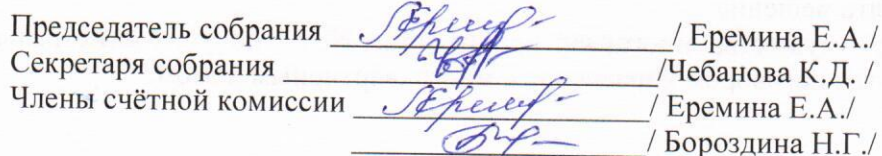 Председатель собрания / Еремина Е.А./
Секретаря собрания /Чебанова К.Д. /
Члены счётной комиссии / Еремина Е.А./
/ Бороздина Н.Г./